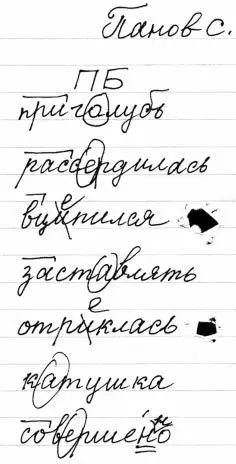 Панов С.
ПБ
приголубь
рассердилась
вцепился
заставлять
отреклась
катушка
совершенно